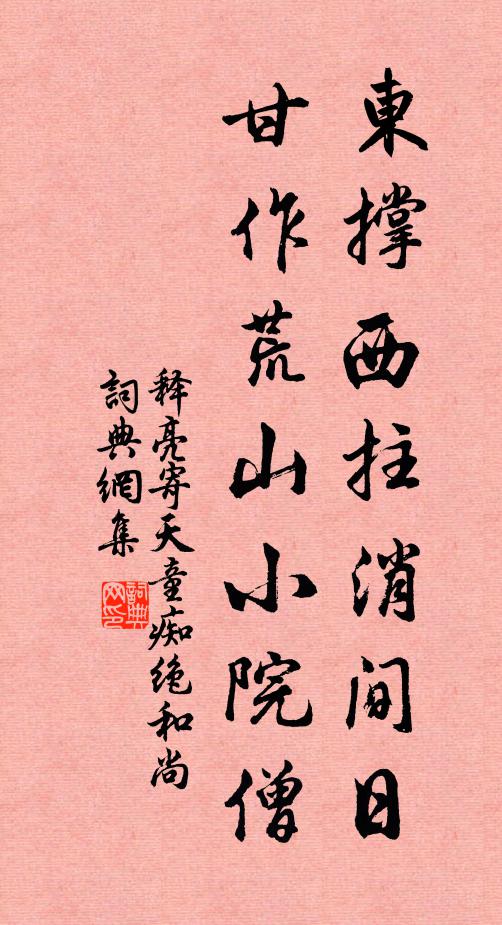 東撐西拄消閒日
甘作荒山小院僧
释亮寄天童痴绝和尚
詞典網集
詞典网印